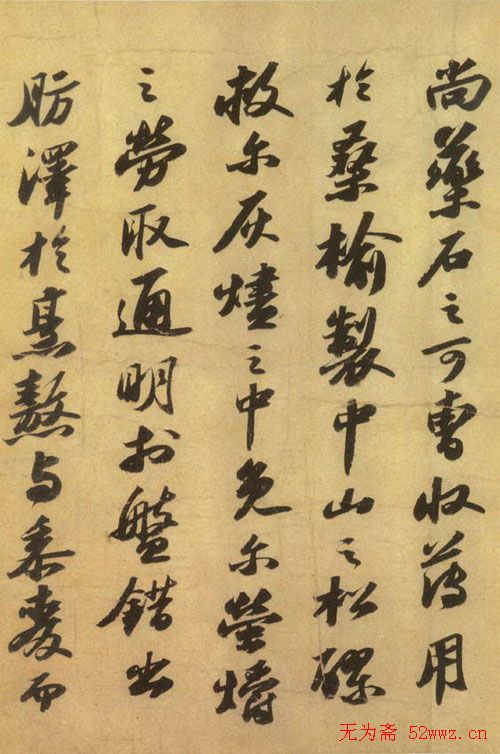 尚藥石之可曹收薄用
於桑榆製中山之松醪
救尔灰燼之中免尔螢爝
之勞取通明於盤錯出
肪澤於烹熬与黍麥而
无为斋 52wwz.cn